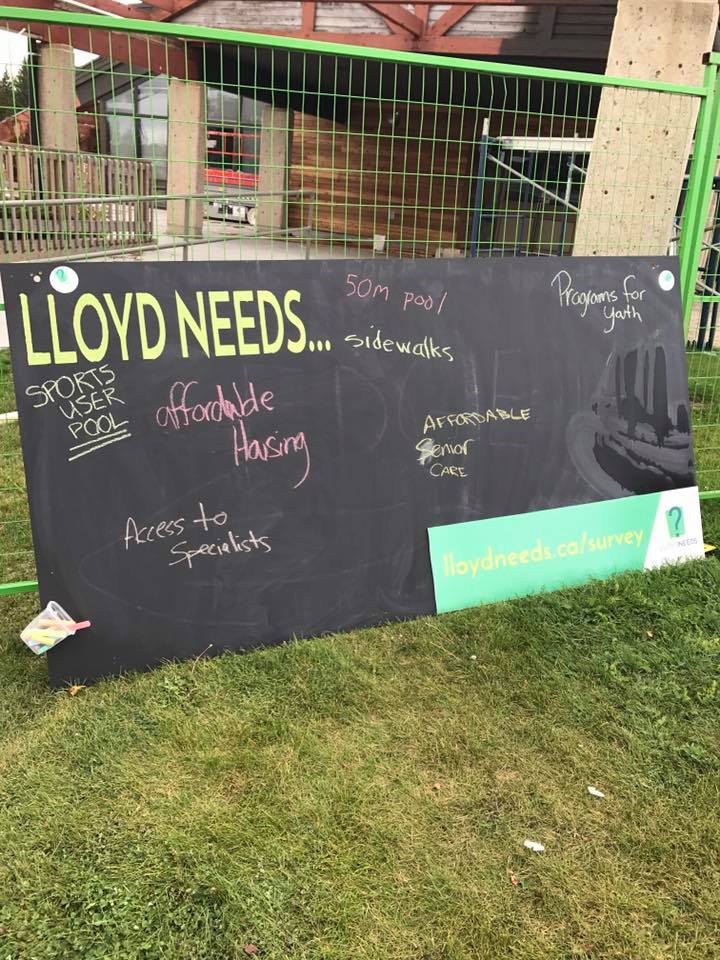 LLOYD NEEDS...
50m pool
sidewalks
Programs for
Youth
SPORTS
USER
POOL
affordable
Housing
AFFORDABLE
Senior
CARE
Access to
Specialists
lloydneeds.ca/survey
?
NEEDS